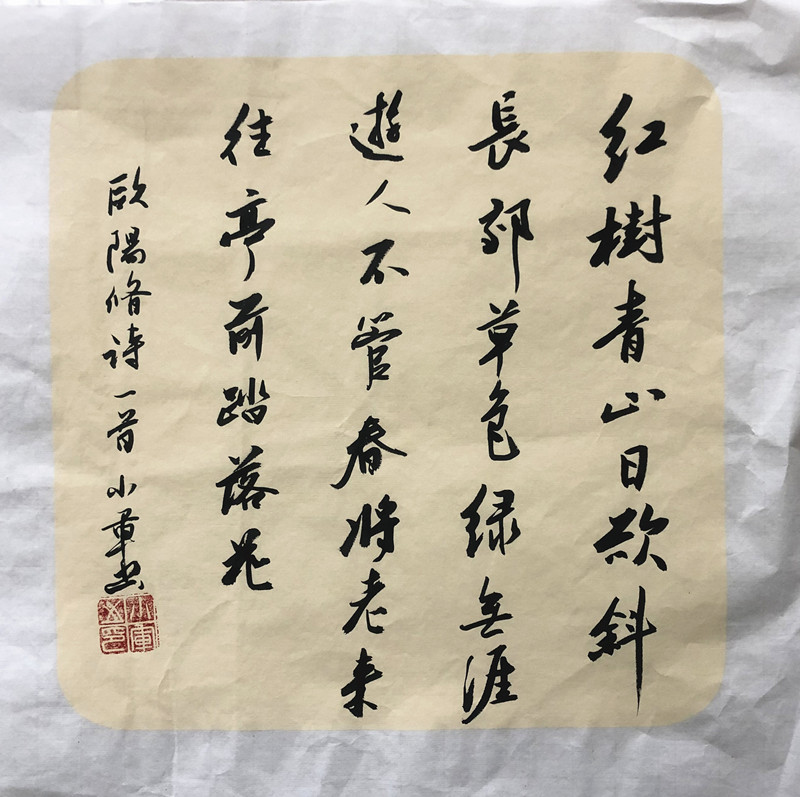 红樹青山日欲斜
長郊草色绿無涯
遊人不管春將老来
往亭前踏落花
欧陽脩诗一首小軍书